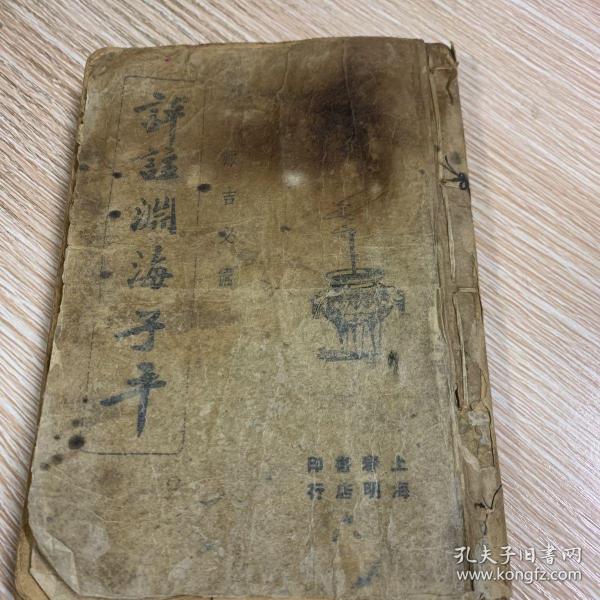 詳註淵海子平
吉必
上海
明
書店
印行
孔夫子旧书网
www.kongfz.com